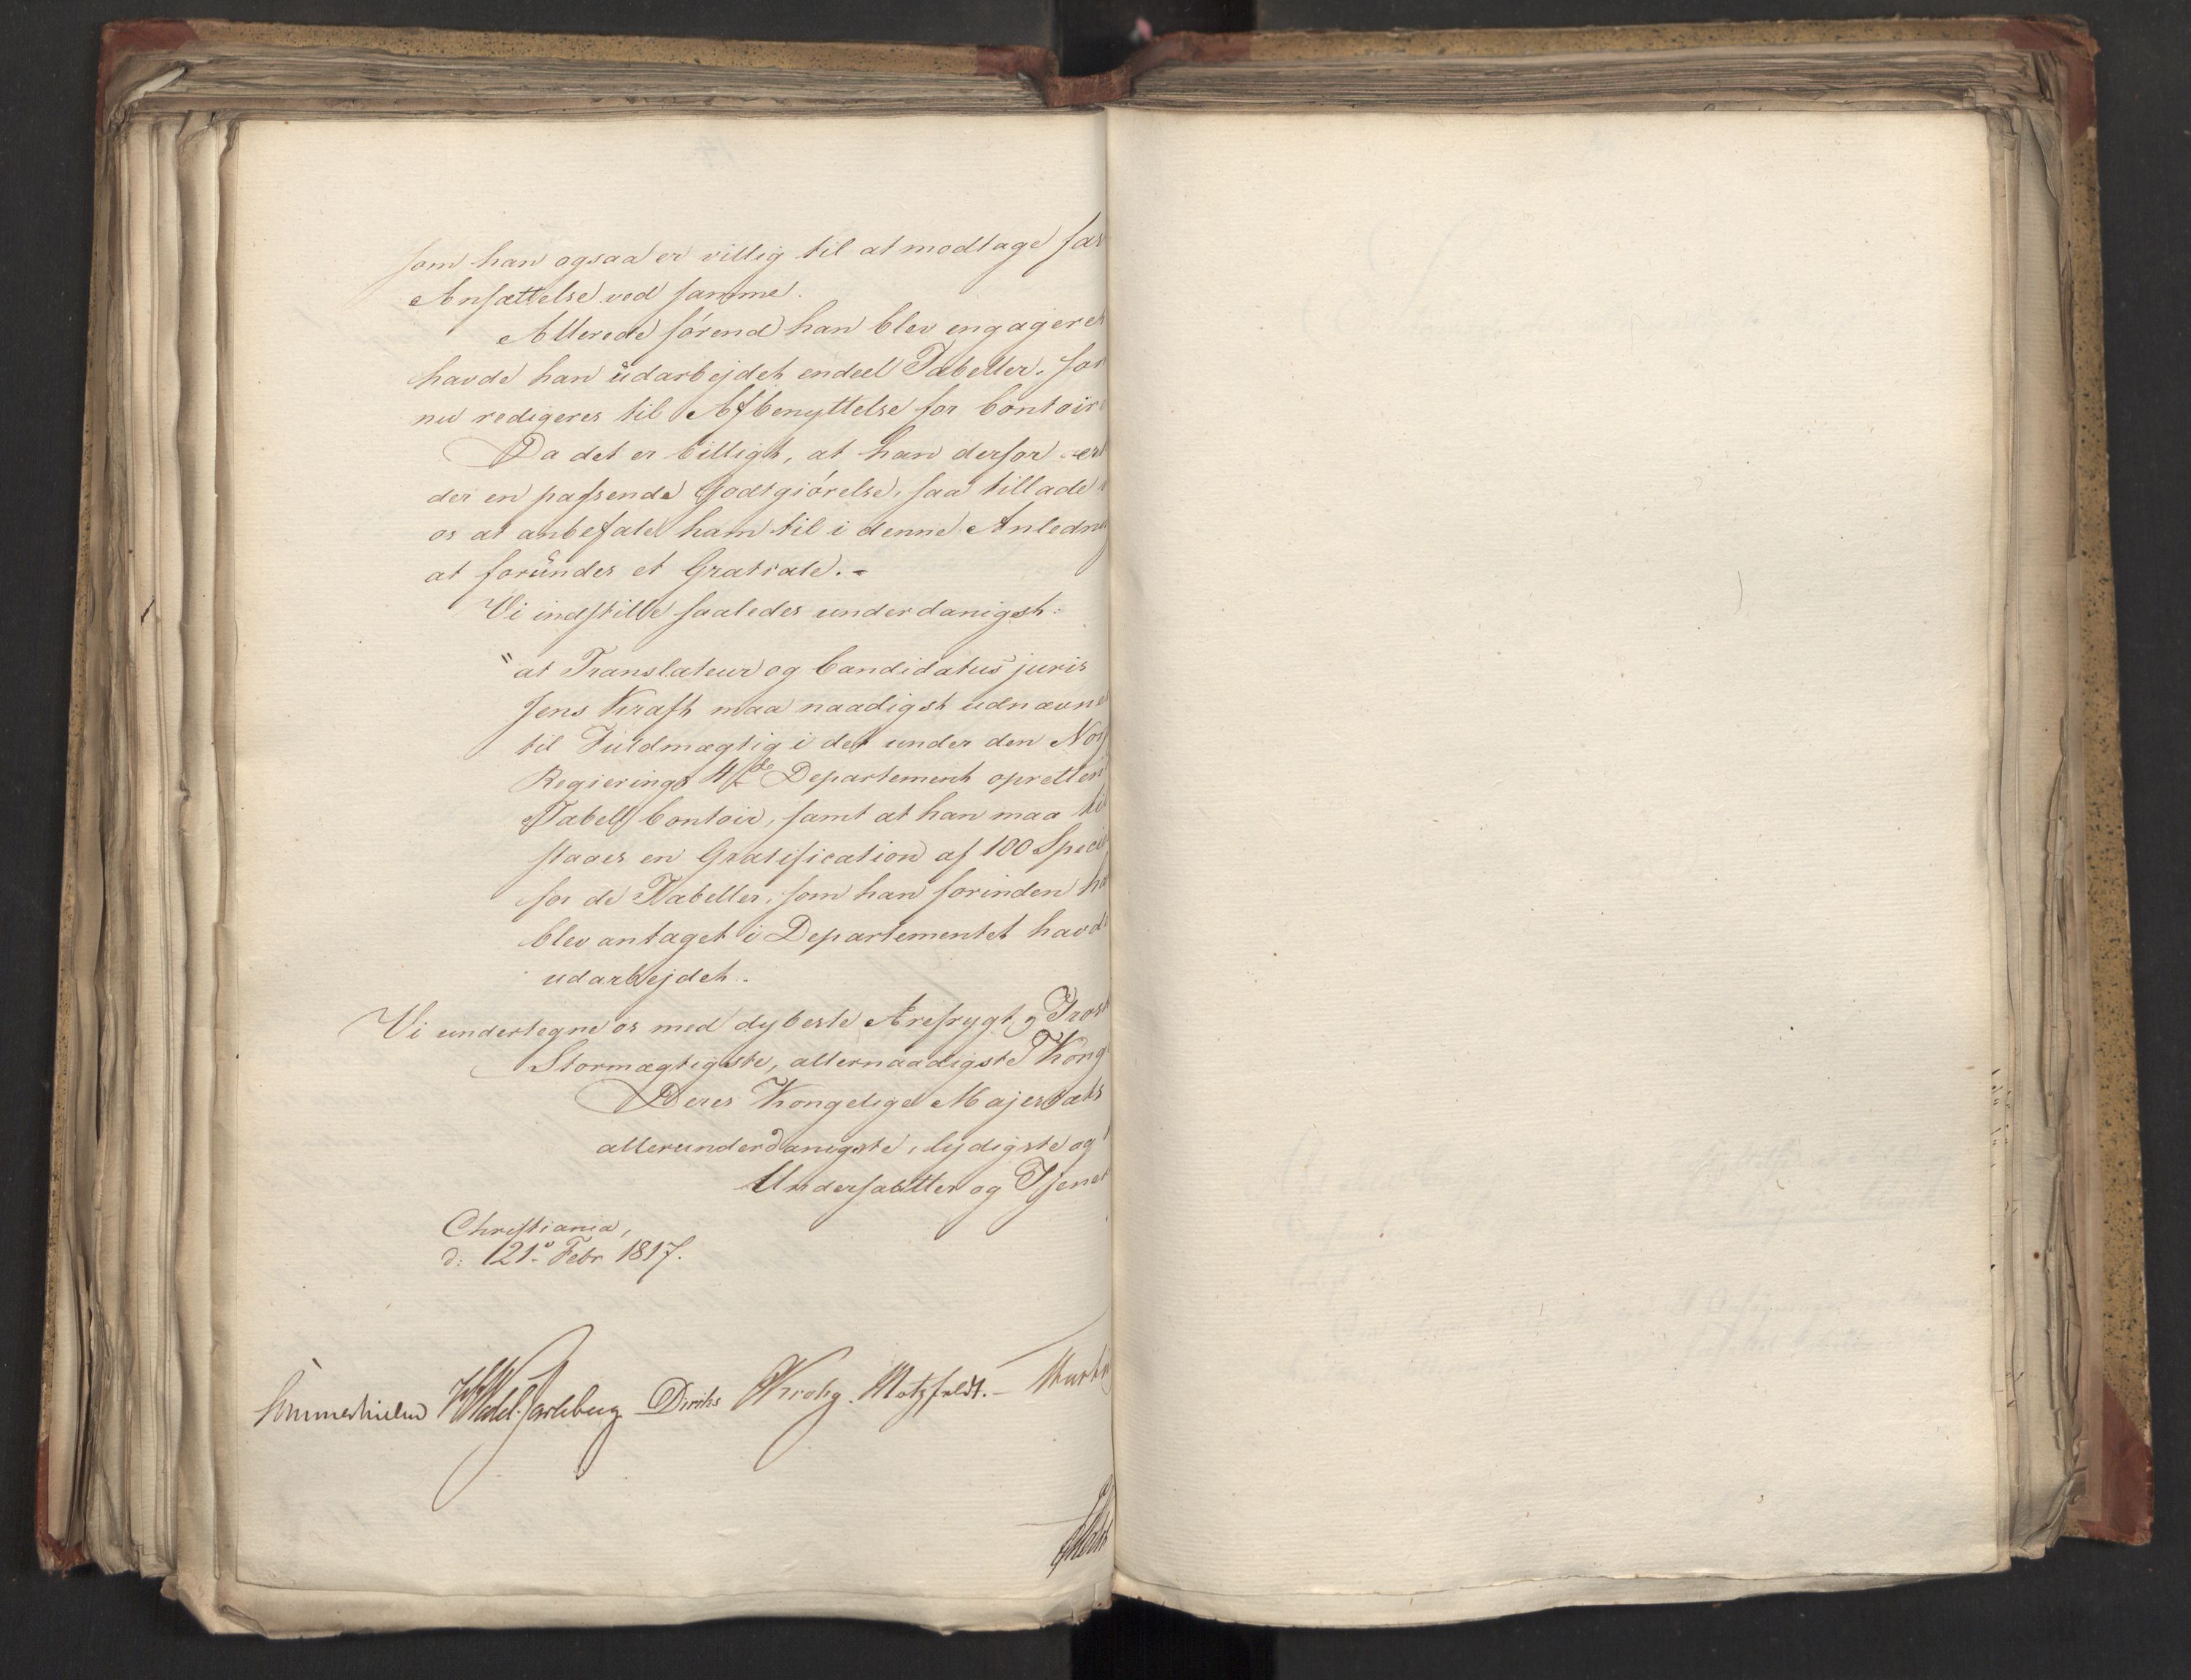 som han ogsaa er villig til at modtage fas
Ansættelse ved samme.
Allerede förend han blev engageret
havde han udarbejdet endeel Tabeller, som
nu redigeres til Afbenyttelse for Contoir
Da det er billigt, at han derfor er
der en passende Godtgiörelse, saa tillade
os at anbefale ham til i denne Anledn
at forundes et Gratiale.-
Vi indstille saaledes underdanigst:
"at Translateur og Candidatus juris
Jens Kraft maa naadigst udnævne
til Fuldmægtig i det under den Nor
Regierings 4de Departement opretted
Tabell Contoir, samt at han maa til
staaes en Gratification af 100 Speci
for de Tabeller, som han forinden ha
blev antaget i Departementet havde
udarbejdet.
Vi undertegne os med dybeste Ærefrygt og Trosk
Stormægtigste, allernaadigste Kong
Deres Kongelige Majestæts
allerunderdanigste, lydigste og
Undersaatter og Tjener
Christiania,
d: 21de Febr 1817.
Sommerhielm Wedel-Jarlsberg Diriks Krohg. Motzfeldt.-